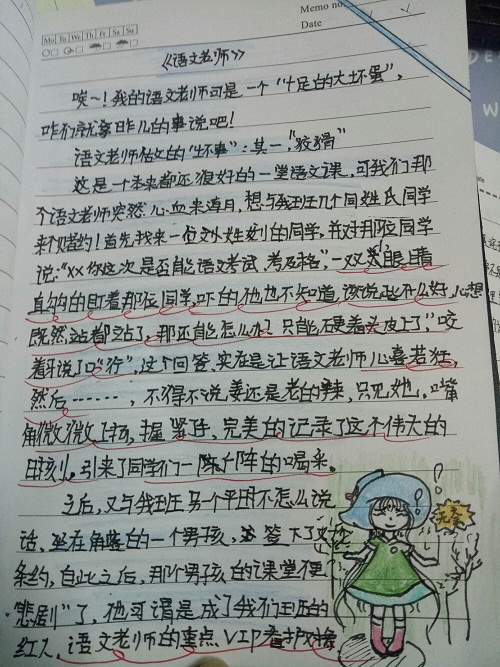 Memo no.
Date
Mo Tu We Th Fr Sa Su
《语文老师》
唉~！我的语文老师可是一个“十足的大坏蛋”，
咋们就拿昨儿的事说吧！
语文老师做的“坏事”：其一，“狡猾”
这是一个本来都还很好的一堂语文课，可我们那
个语文老师突然心血来潮，想与我班几个同姓氏同学
来个赌约！首先找来一位姓刘的同学，并对那位同学
说：“xx你这次是否能语文考试，考及格”，一双大眼睛
直钩的盯着那位同学，吓的他也不知道该说些什么好，心想
既然，站都站了，那还能怎么办？只能硬着头皮上了，”咬
着牙说了口“行”，这个回答，实在是让语文老师心喜若狂，
然后……，不得不说，姜还是老的辣，只见她，嘴
角微微上扬，握紧手，完美的记录了这个伟大的
时刻，引来了同学们一阵阵的喝采。
之后，又与我班另一个平时不怎么说
话，坐在角落的一个男孩，签下了
条约，自此之后，那个男孩的课堂便
“悲剧”了，他可谓是成了我们班的
红人，语文老师的重点VIP看护对象